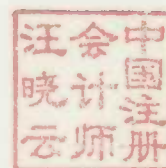 中国注册
会计师
汪晓云